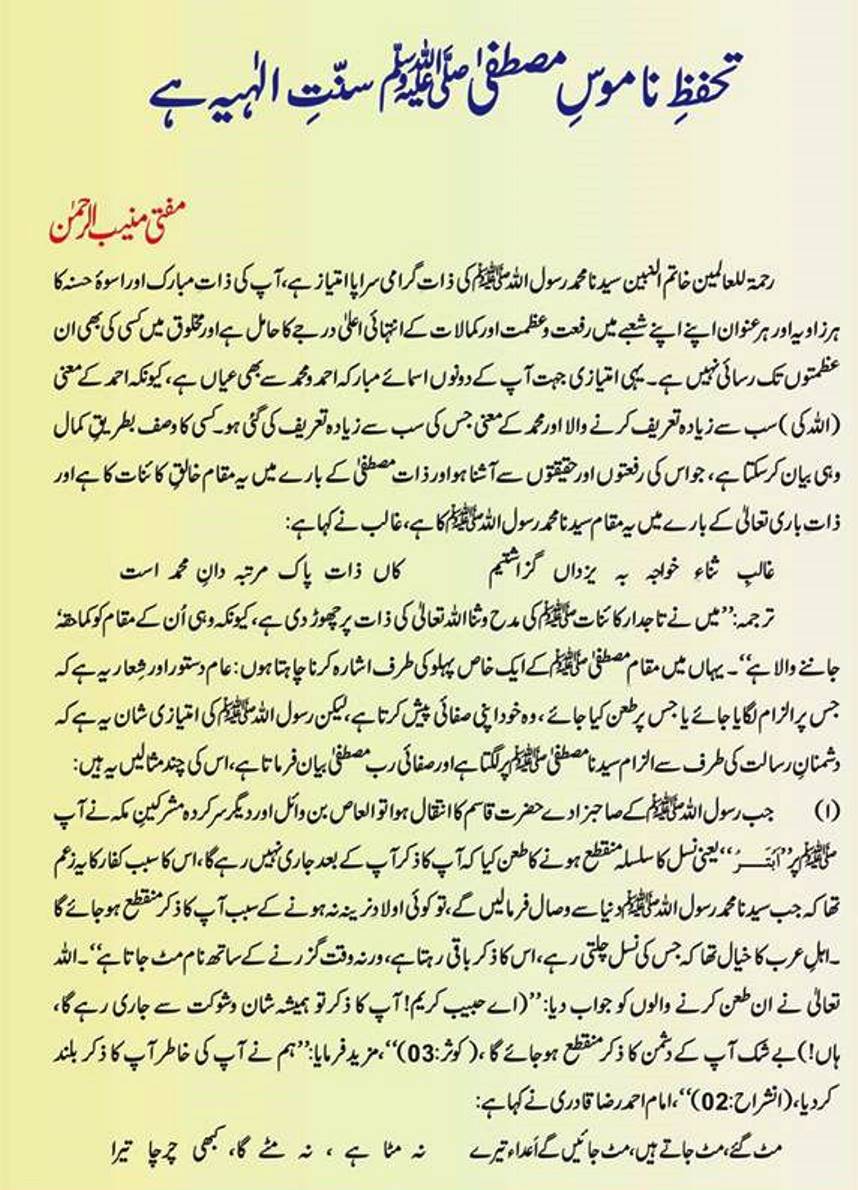 تحفظِ ناموسِ مصطفیٰ ﷺ سنّتِ الٰہیہ ہے
مفتی منیب الرحمٰن
رحمۃ للعالمین خاتم النبین سیدنا محمد رسول اللہ ﷺ کی ذات گرامی سراپا امتیاز ہے، آپ کی ذات مبارک اور اسوۂ حسنہ کا
ہر زاویہ اور ہر عنوان اپنے اپنے شعبے میں رفعت وعظمت اور کمالات کے انتہائی اعلیٰ درجے کا حامل ہے اور مخلوق میں کسی کی بھی ان
عظمتوں تک رسائی نہیں ہے۔ یہی امتیازی جہت آپ کے دونوں اسمائے مبارکہ احمد ومحمد سے بھی عیاں ہے، کیونکہ احمد کے معنی
(اللہ کی) سب سے زیادہ تعریف کرنے والا اور محمد کے معنی جس کی سب سے زیادہ تعریف کی گئی ہو۔ کسی کا وصف بطریقِ کمال
وہی بیان کرسکتا ہے، جو اس کی رفعتوں اور حقیقتوں سے آشنا ہو اور ذات مصطفیٰ کے بارے میں یہ مقام خالقِ کائنات کا ہے اور
ذات باری تعالیٰ کے بارے میں یہ مقام سیدنا محمد رسول اللہ ﷺ کا ہے، غالب نے کہا ہے:
غالب ثناءِ خواجہ بہ یزداں گزاشتیم کاں ذات پاک مرتبہ دانِ محمد است
ترجمہ: ’’میں نے تاجدارِ کائنات ﷺ کی مدح وثنا اللہ تعالیٰ کی ذات پر چھوڑ دی ہے، کیونکہ وہی اُن کے مقام کو کماحقہٗ
جاننے والا ہے‘‘۔ یہاں میں مقام مصطفیٰ ﷺ کے ایک خاص پہلو کی طرف اشارہ کرنا چاہتا ہوں: عام دستور اور شِعار یہ ہے کہ
جس پر الزام لگایا جائے یا جس پر طعن کیا جائے، وہ خود اپنی صفائی پیش کرتا ہے، لیکن رسول اللہ ﷺ کی امتیازی شان یہ ہے کہ
دشمنانِ رسالت کی طرف سے الزام سیدنا مصطفیٰ ﷺ پر لگتا ہے اور صفائی رب مصطفیٰ بیان فرماتا ہے، اس کی چند مثالیں یہ ہیں:
(۱) جب رسول اللہ ﷺ کے صاحبزادے حضرت قاسم کا انتقال ہوا تو العاص بن وائل اور دیگر سرکردہ مشرکینِ مکہ نے آپ
ﷺ پر ’’اَبْتَــرُ‘‘ یعنی نسل کا سلسلہ منقطع ہونے کا طعن کیا کہ آپ کا ذکر آپ کے بعد جاری نہیں رہے گا، اس کا سبب کفار کا یہ زعم
تھا کہ جب سیدنا محمد رسول اللہ ﷺ دنیا سے وصال فرمالیں گے، تو کوئی اولادِ نرینہ نہ ہونے کے سبب آپ کا ذکر منقطع ہوجائے گا
۔ اہلِ عرب کا خیال تھا کہ جس کی نسل چلتی رہے، اس کا ذکر باقی رہتا ہے، ورنہ وقت گزرنے کے ساتھ نام مٹ جاتا ہے‘‘۔ اللہ
تعالیٰ نے ان طعن کرنے والوں کو جواب دیا: ’’(اے حبیب کریم! آپ کا ذکر تو ہمیشہ شان وشوکت سے جاری رہے گا،
ہاں!) بے شک آپ کے دشمن کا ذکر منقطع ہوجائے گا، (کوثر:03)‘‘، مزید فرمایا: ’’ہم نے آپ کی خاطر آپ کا ذکر بلند
کردیا، (انشراح:02)‘‘، امام احمد رضا قادری نے کہا ہے:
مٹ گئے، مٹ جاتے ہیں، مٹ جائیں گے اَعداء تیرے نہ مٹا ہے، نہ مٹے گا، کبھی چرچا تیرا